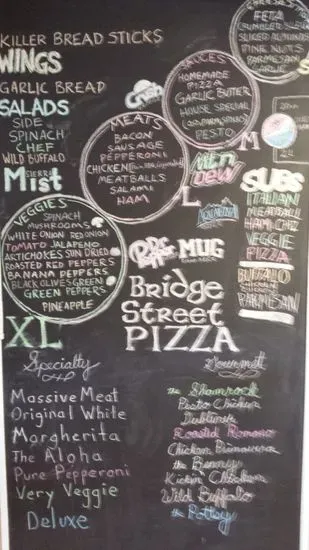 KILLER BREAD STICKS
WINGS
GARLIC BREAD
SALADS
SIDE
SPINACH
CHEF
WILD BUFFALO
SIERRA
Mist
CHEESES
FETA
PINE NUTS
PARMESAN
GARLIC
SAUCES
HOMEMADE
PIZZA
GARLIC BUTTER
HOUSE SPECIAL
PESTO
Crush
MEATS
BACON
SAUSAGE
PEPPERONI
CHICKEN
MEATBALLS
SALAMI
HAM
Mtn
Dew
M
L
AQUAFINA
SUBS
ITALIAN
MEATBALL
HAM/CHZ
VEGGIE
PIZZA
BUFFALO
CHICKEN
CHICKEN
PARMESAN
VEGGIES
SPINACH
MUSHROOMS
WHITE ONION RED ONION
TOMATO JALAPENO
ARTICHOKES SUN DRIED
ROASTED RED PEPPERS
BANANA PEPPERS
BLACK OLIVES GREEN
GREEN PEPPERS
PINEAPPLE
MUG
Bridge
Street
PIZZA
XL
Specialty
Massive Meat
Original White
Margherita
The Aloha
Pure Pepperoni
Very Veggie
Deluxe
Gourmet
the Shamrock
Pesto Chicken
Dubliner
Roasted Romano
Chicken Primavera
the Bunny
Kickin' Chicken
Wild Buffalo
the Pottsy